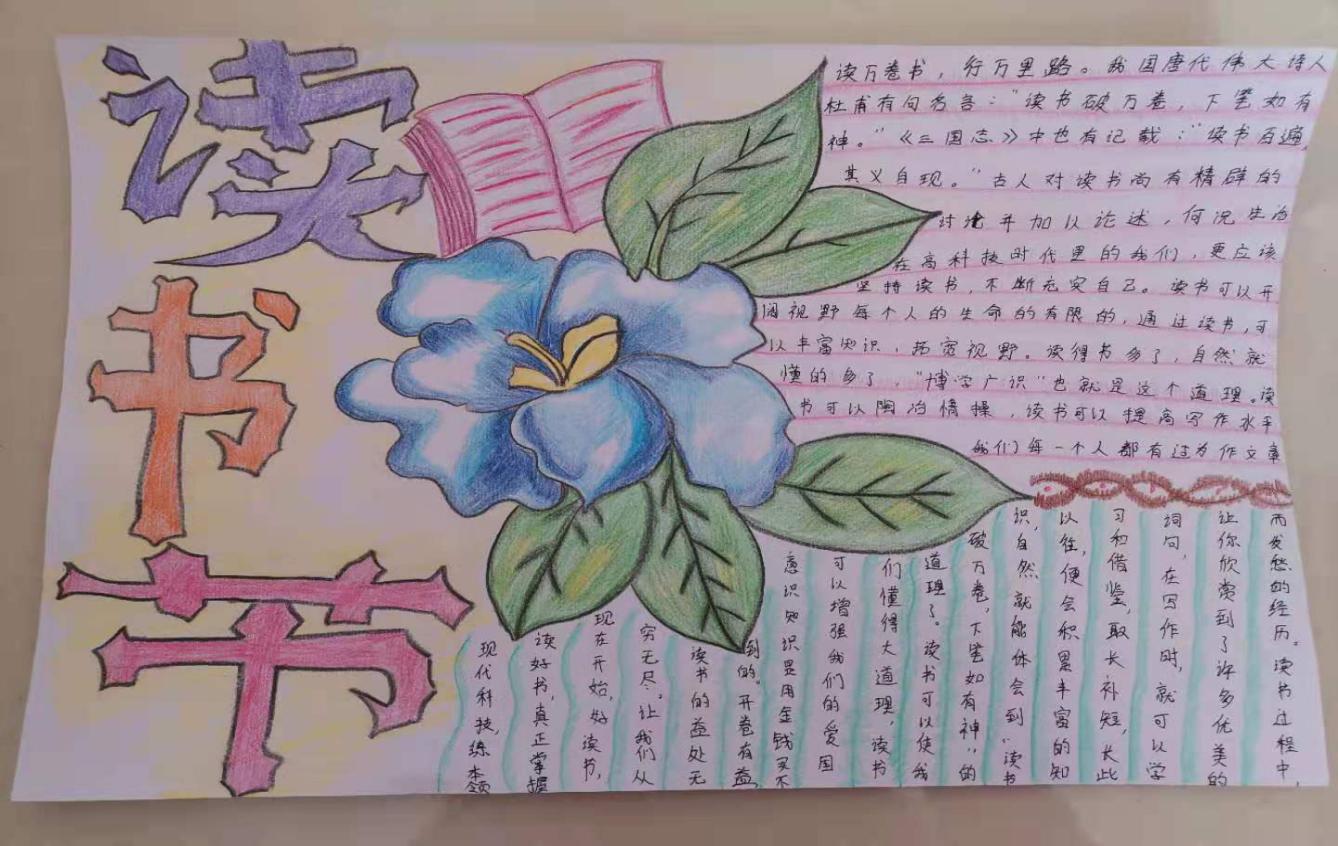 读书节
读万卷书，行万里路。我国唐代伟大诗人
杜甫有句名言：“读书破万卷，下笔如有
神。”《三国志》中也有记载：“读书百遍，
其义自现。”古人对读书尚有精辟的
讨论并加以论述，何况生活
在高科技时代里的我们，更应该
坚持读书，不断充实自己。读书可以开
阔视野每个人的生命的有限的，通过读书，可
以丰富知识，拓宽视野。读得书多了，自然就
懂的多了，“博学广识”也就是这个道理。读
书可以陶冶情操，读书可以提高写作水平
我们每一个人都有过为作文章
而发愁的经历。读书过程中，
让你欣赏到了许多优美的
词句，在写作时，就可以学
习和借鉴，取长补短，长此
以往，便会积累丰富的知
识，自然就能体会到“读书
破万卷，下笔如有神”的
道理了。读书可以使我
们懂得大道理，读书
可以增强我们的爱国
意识知识是用金钱买不
到的。开卷有益，
读书的益处无
穷无尽。让我们从
现在开始，好读书，
读好书，真正掌握
现代科技，练本领